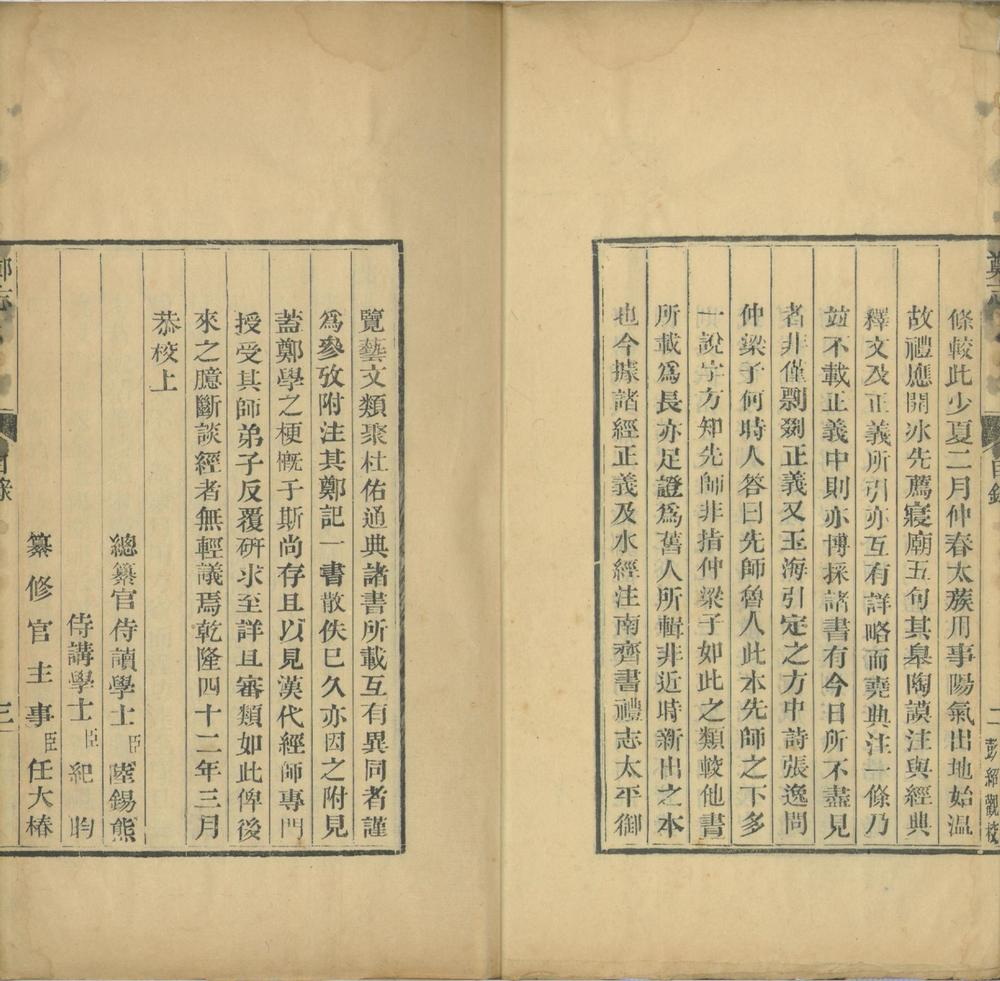 鄭志
目錄
二
彭紹觀校
條較此少夏二月仲春太蔟用事陽氣出地始温
故禮應開冰先薦寢廟五句其皋陶謨注與經典
釋文及正義所引亦互有詳略而堯典注一條乃
竝不載正義中則亦博採諸書有今日所不盡見
者非僅剽剟正義又玉海引定之方中詩張逸問
仲梁子何時人答曰先師魯人此本先師之下多
一說字方知先師非指仲梁子如此之類較他書
所載爲長亦足證爲舊人所輯非近時新出之本
也今據諸經正義及水經注南齊書禮志太平御
覽藝文類聚杜佑通典諸書所載互有異同者謹
爲參攷附注其鄭記一書散佚巳久亦因之附見
葢鄭學之梗槪于斯尚存且以見漢代經師專門
授受其師弟子反覆硏求至詳且審類如此俾後
來之臆斷談經者無輕議焉乾隆四十二年三月
恭校上
總纂官侍讀學士臣陸錫熊
侍講學士臣紀昀
纂修官主事臣任大椿
鄭志
目錄
三